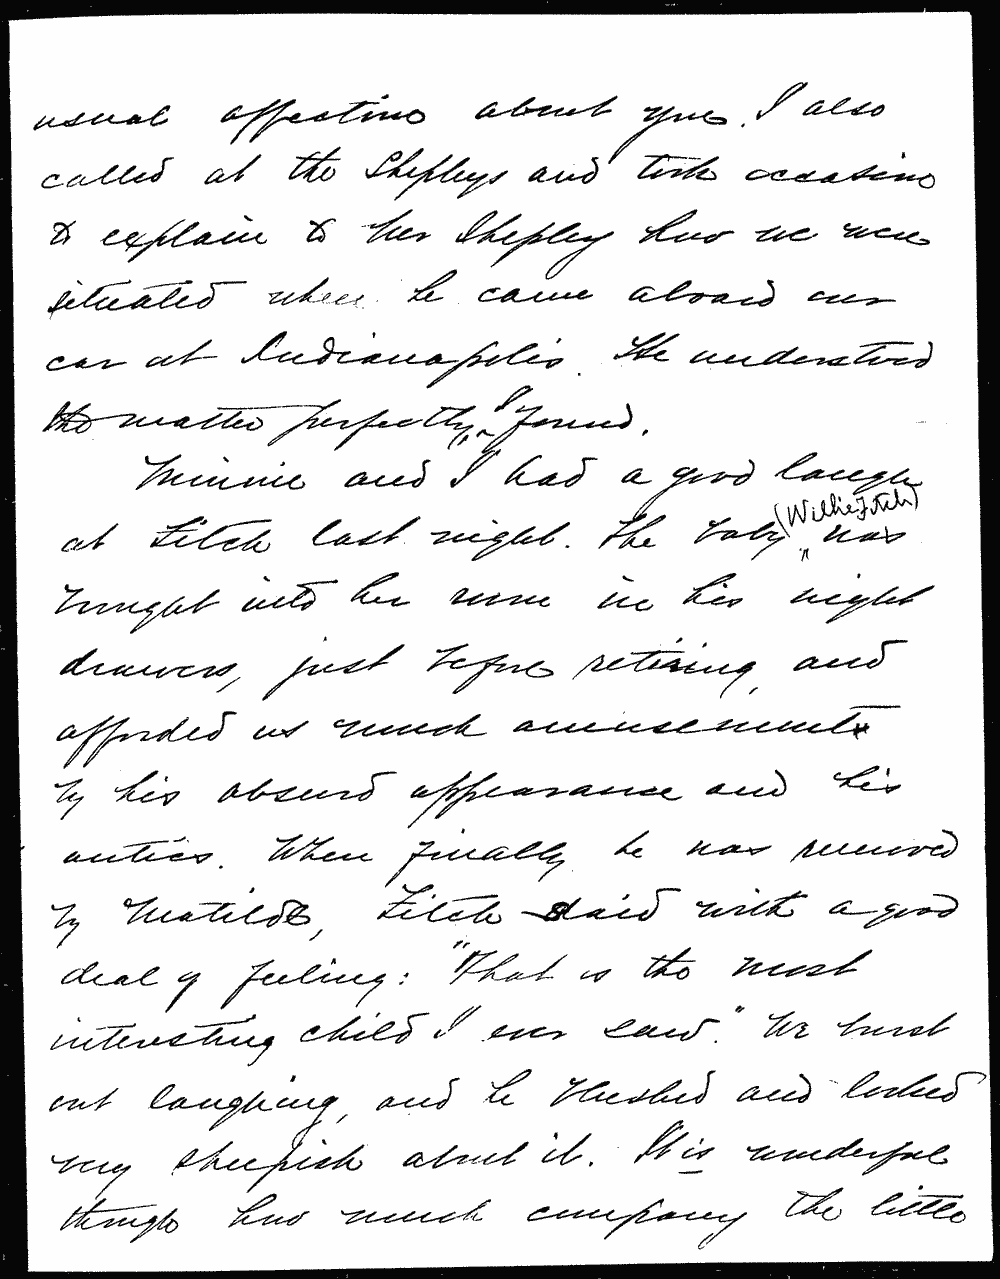 usual affection about you. I also
called at the Shepleys and took occasion
to explain to Mr Shepley how we were
situated when he came aboard our
car at Indianapolis. He understood
the matter perfectly, I found.
Minnie and I had a good laugh
at Fitch last night. The baby (Willie Fitch) was
brought into her room in his night
drawers, just before retiring, and
afforded us much amusement
by his absurd appearance and his
antics. When finally he was removed
by Matilda, Fitch said with a good
deal of feeling: "That is the most
interesting child I ever saw." We burst
out laughing, and he blushed and looked
very sheepish about it. It is wonderful
though how much company the little